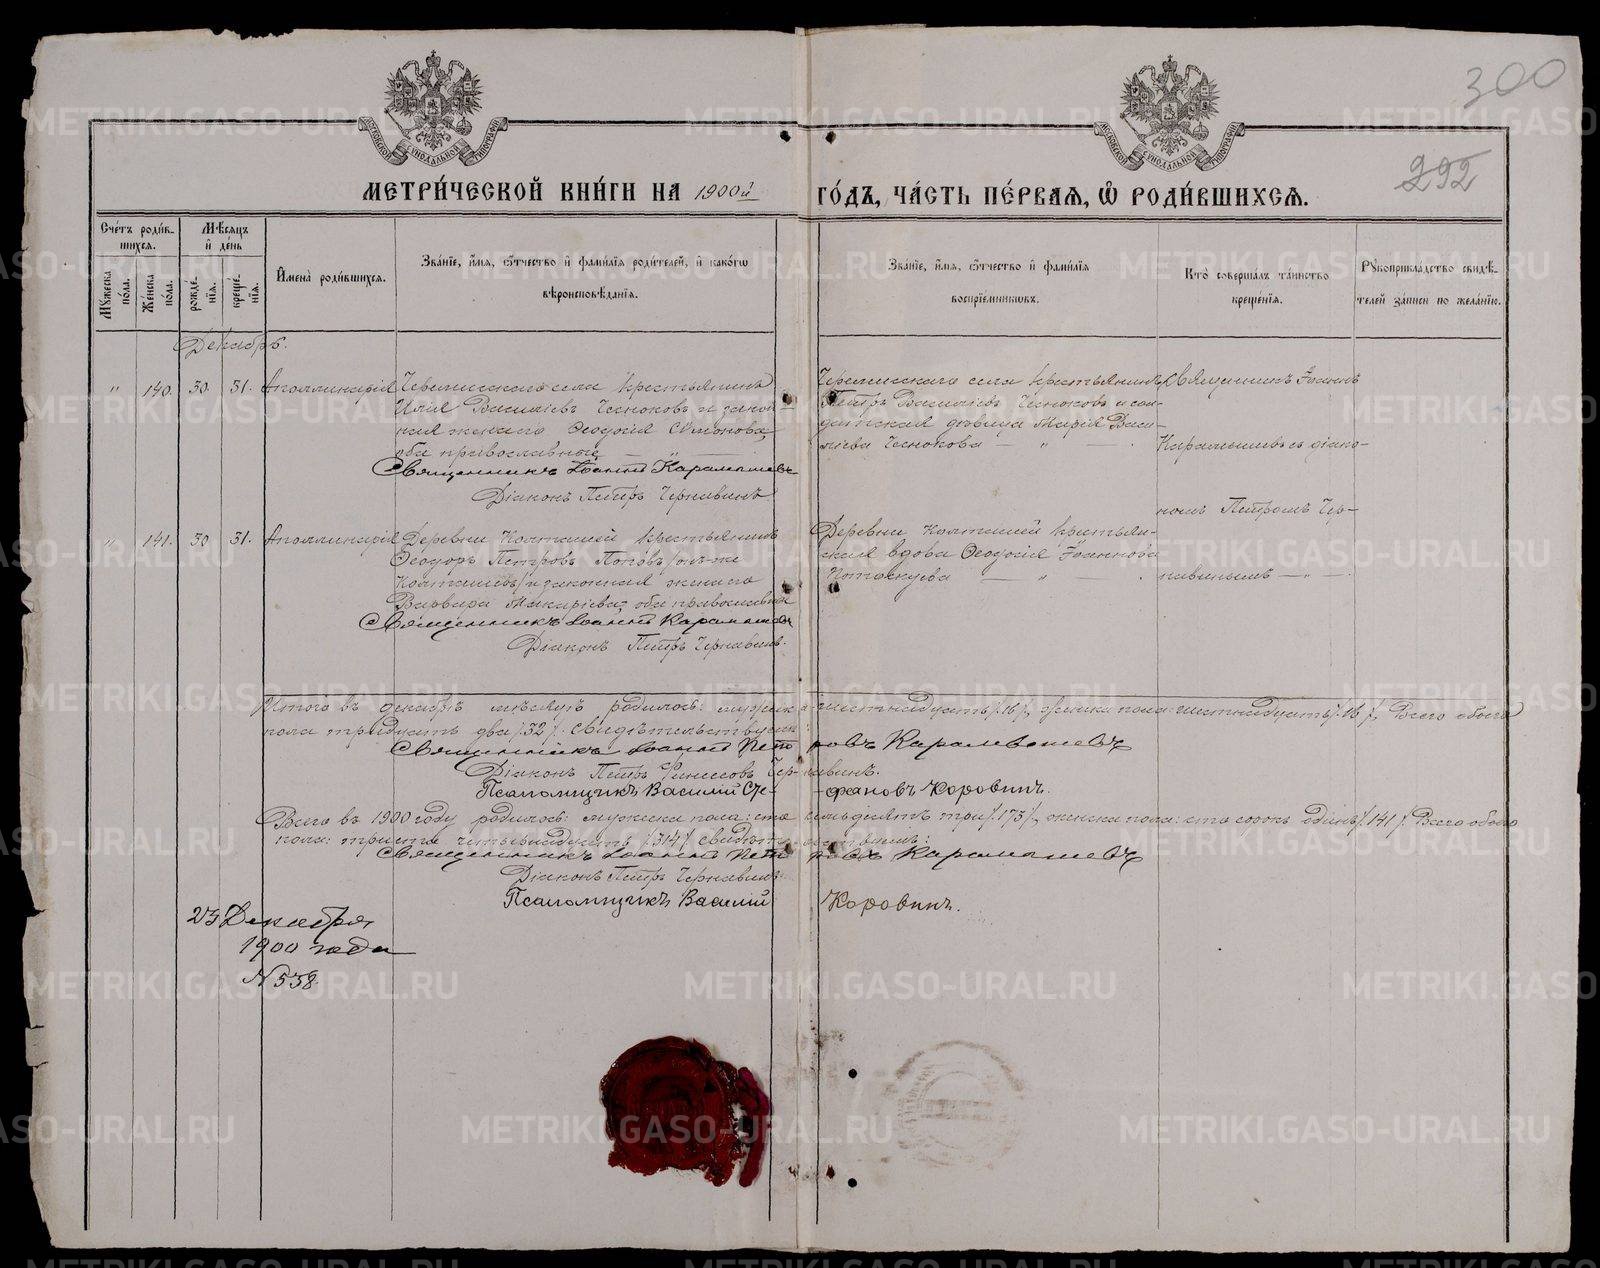 300
292
МОСКОВСКОЙ СѴНОДАЛЬНОЙ ТИПОГРАФІИ
МОСКОВСКОЙ СѴНОДАЛЬНОЙ ТИПОГРАФІИ
МЕТРИ́ЧЕСКОЙ КНИ́ГИ НА 1900й ГО́ДЪ, ЧА́СТЬ ПЕ́РВАЯ, Ѡ҆ РОДИ́ВШИХСЯ.
Сче́тъ роди́в-
шихся.
Мѣсяцъ
и҆ де́нь
Мꙋ́жеска
по́ла.
Же́нска
по́ла.
рожде́-
нїя.
креще́-
нїя.
И҆мена̀ роди́вшихся.
Зва́нїе, и҆́мя, ѻ҆́тчество и҆ фами́лїя роди́телей, и҆ како́гѡ
вѣроисповѣ́данїя.
Зва́нїе, и҆́мя, ѻ҆́тчество и҆ фами́лїя
воспрїе́мниковъ.
Кто̀ соверша́лъ та́инство
креще́нїя.
Рꙋкоприкла́дство свидѣ́-
телей за́писи по жела́нїю.
Декабрь.
" 140. 30. 31. Аполлинарія
Черемисскаго села крестьянинъ
Илія Василіевъ Чесноковъ и закон-
ная жена его Ѳеодосія Симонова,
оба православные — " —
Священникъ Іоаннъ Карамышевъ
Діаконъ Петръ Чернавинъ
Черемисскаго села крестьянинъ
Петръ Василіевъ Чесноковъ и сол-
датская дѣвица Марія Васи-
ліева Чеснокова — " — .
Священникъ Іоаннъ
Карамышевъ съ діако-
номъ Петромъ Чер-
навинымъ — " — .
" 141. 30 31. Аполлинарія
Деревни Колташей крестьянинъ
Ѳеодоръ Петровъ Поповъ /онъ-же
Колташевъ/ и законная жена его
Варвара Макаріева, оба православные
Священникъ Іоаннъ Карамышевъ
Діаконъ Петръ Чернавинъ.
Деревни Колташей крестьян-
ская вдова Ѳеодосія Іоаннова
Потоскуева — " — .
Итого въ декабрѣ мѣсяцѣ родилось: мужска шестнадцать /16/, женска пола: шестнадцать /16/, Всего обоего
пола тридцать два /32/. Свидѣтельствуемъ:
Священникъ Іоаннъ Петровъ Карамышевъ
Діаконъ Петръ Чернавинъ.
Псаломщикъ Василій Сте-фановъ Коровинъ.
Всего въ 1900 году родилось: мужска пола: сто семьдесятъ три /173/, женска пола: сто сорокъ одинъ /141/. Всего обоего
пола: триста четырнадцать /314/ свидѣтельствуемъ:
Священникъ Іоаннъ Петровъ Карамышевъ
Діаконъ Петръ Чернавинъ.
Псаломщикъ Василій Коровинъ.
Декабря
1900 года
N 538
METRIKI.GASO-URAL.RU